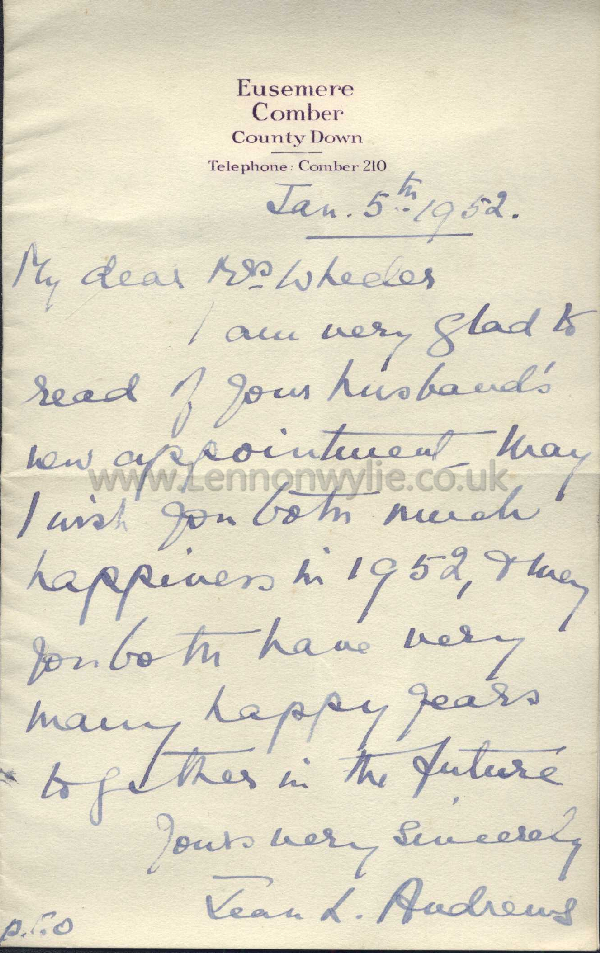 Eusemere
Comber
County Down
Telephone: Comber 210
Jan. 5th 1952.
My dear Mrs Wheeler
I am very glad to
read of your husband's
new appointment May
www.Lennonwylie.co.uk
I wish you both much
happiness in 1952, & may
you both have very
many happy years
together in the future
Yours very sincerely
Jean L. Andrews
P.T.O